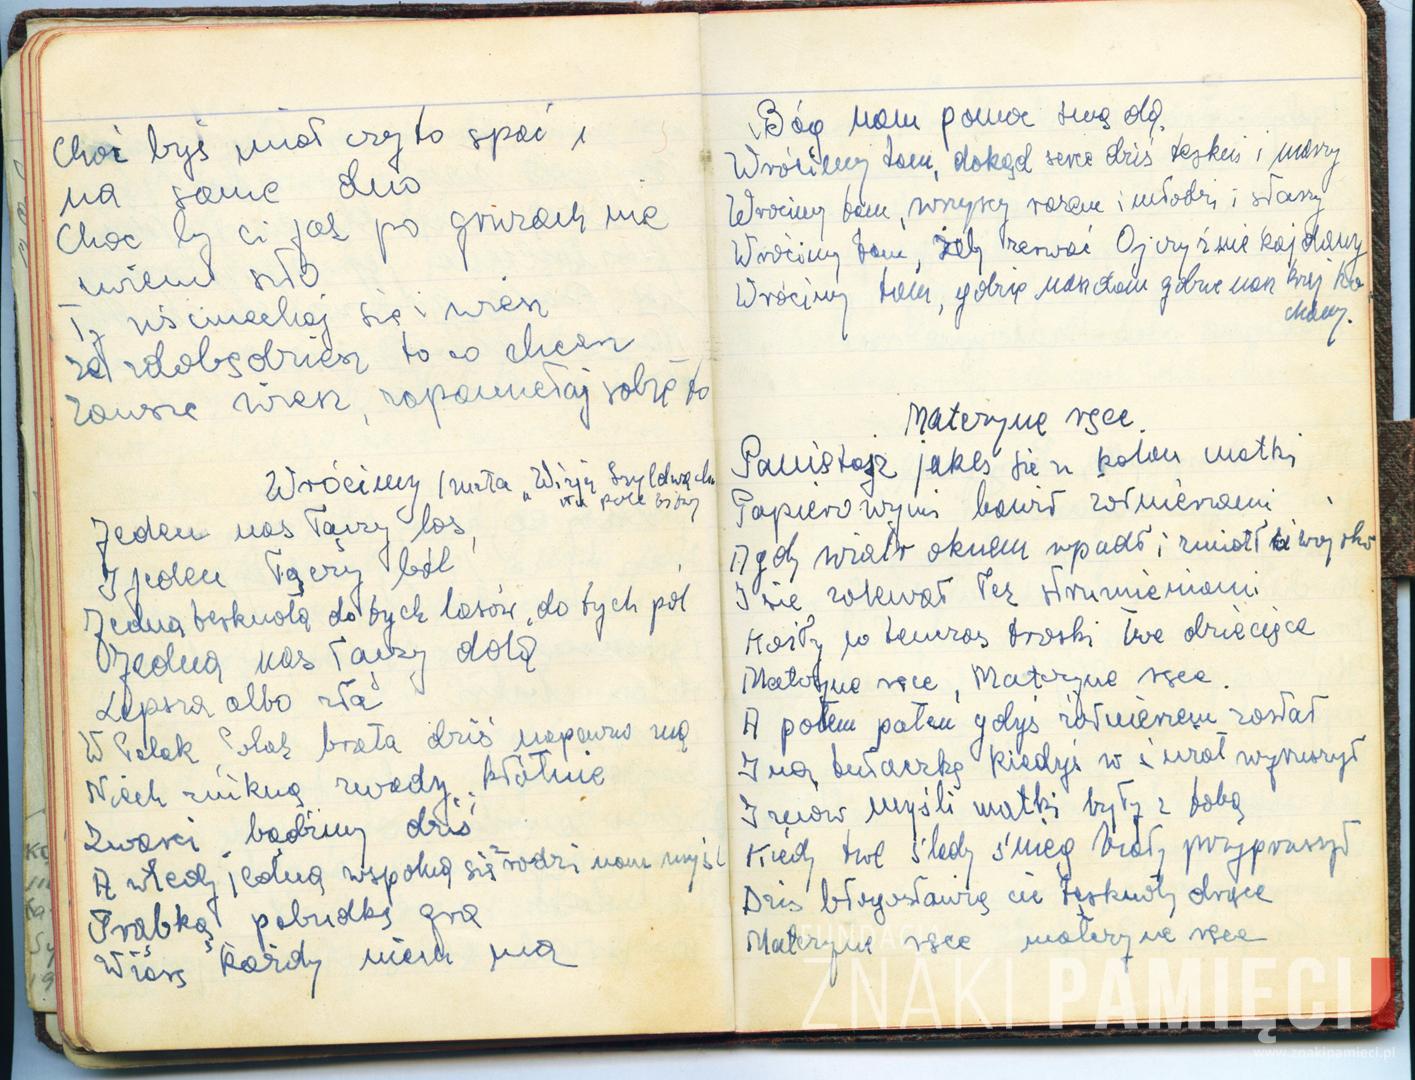 Choć byś miał czyto spać i
na same dno
Choc by ci jak po grurach nie
wiem szło
Ty uśmiechaj się i wiesz
że zdobędziesz to co chcesz
Zawsze wiesz, zapamiętaj sobie to
Wrócimy /meta „Wizją Szyldwacha
na polu bitwy
Jeden nas łączy los,
I jeden łączy ból
Jedną tęsknotą do tych lasów, do tych pól
Jedną nas łączy dolą
Lepsza albo zła
W Polak, Polak brata dziś napewno ma
Niech znikną zwady, kłótnie
Zwarci bądźmy dziś
A wtedy jedna wspólna się zrodzi nam myśl
Trąbka pobudkę gra
Wiarę każdy niech ma
Bóg nam pomoc swą da,
Wrócimy tam, dokąd serce dziś tęskni i marzy
Wrócimy tam, wszyscy razem i młodzi i starzy
Wrócimy tam, żeby zerwać Ojczyźnie kajdany
Wrócimy tam, gdzie nasz dom gdzie nasz kraj ko
chany.
Matczyne ręce.
Pamiętasz jakeś się u kolan matki
Papierowymi bawił żołnierzami
A gdy wiatr oknem wpadł i zmiótł ci wojsko
I się zalewał łez strumieniami
Koiły w tenczas troski twe dziecięce
Matczyne ręce, Matczyne ręce.
A potem potem gdyś żołnierzem został
I na tułaczkę kiedyś w świat wyruszył
I znów myśli matki były z tobą
Kiedy twe ślady śnieg biały przyprószył
Dziś błogosławią cie tęsknoty drżące
Matczyne ręce matczyne ręce
FUNDACJA
ZNAKI PAMIĘCI
www.znakipamieci.pl